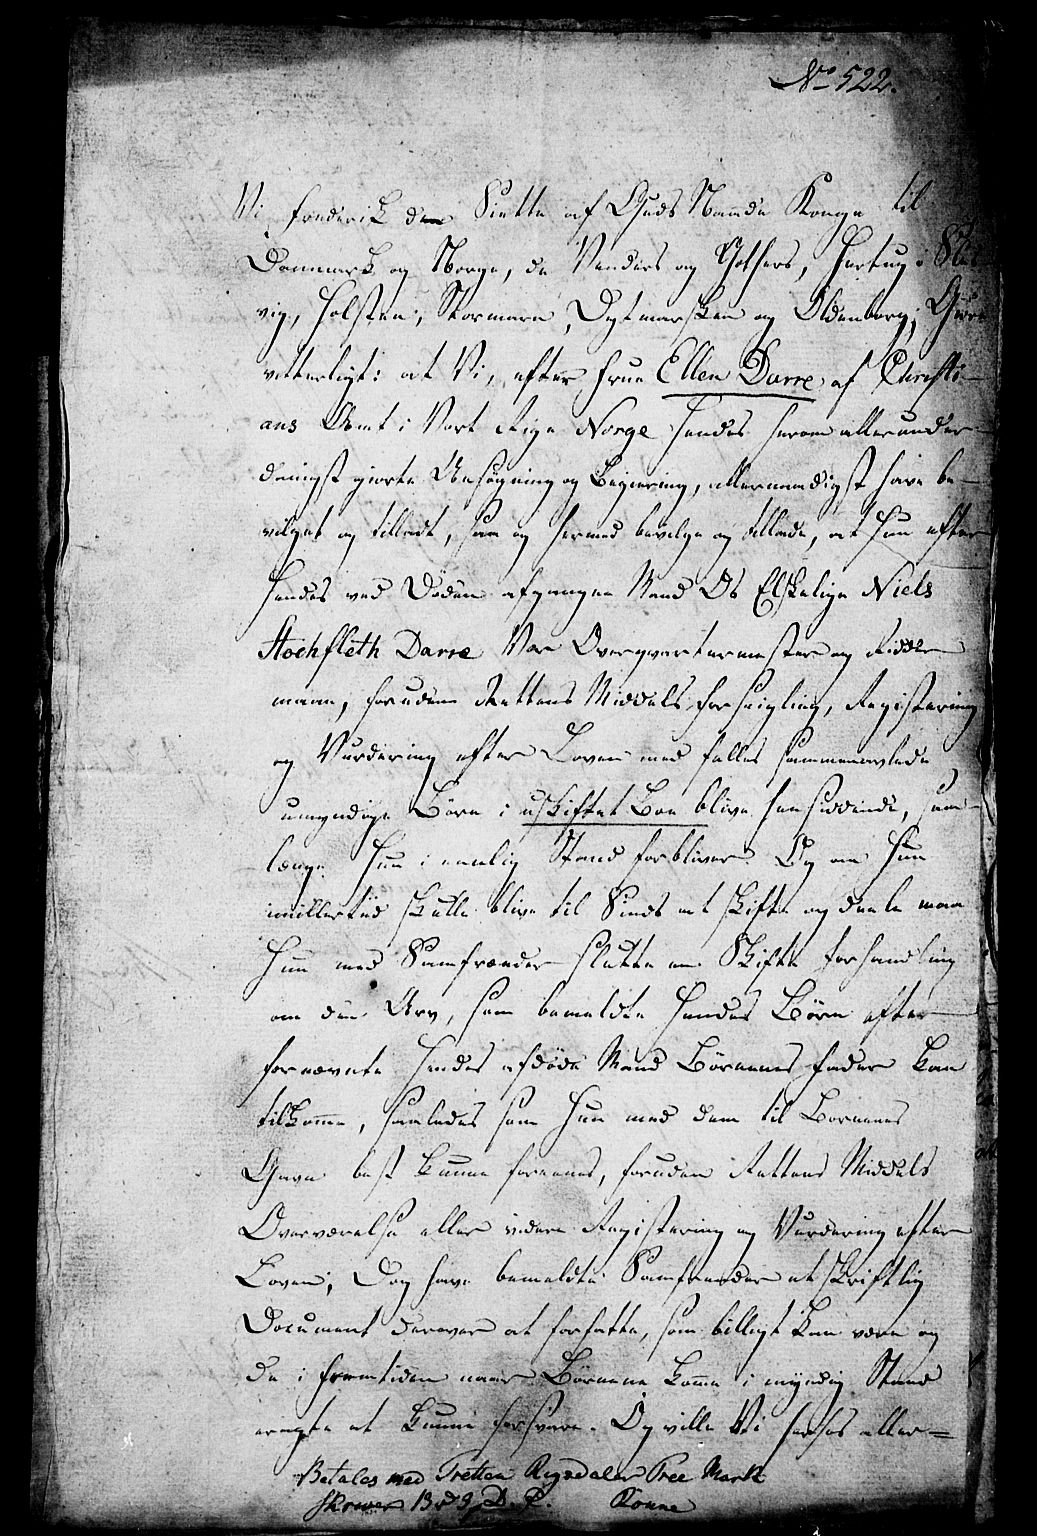 No 522.
Vi Frederik den Siette af Guds Naade Konge til
Danmark og Norge, de Venders og Gothers, Hertug i Sles-
vig, Holsten, Stormarn, Dytmarsken og Oldenborg; Giøre
vitterligt: at Vi, efter Frue Ellen Darre af Christi-
ans Amt i Vort Rige Norge hendes herom allerunder-
danigst giorte Ansøgning og Begiering, allernaadigst have be-
vilget og tilladt, saa og hermed bevilge og tillade, at hun efter
hendes ved Døden afgangne Mand Os Elskelige Niels
Stochfleth Darre Vor Overqvarteermester og Ridder
maae, foruden Rettens Middels Forseigling, Registering
og Vurdering efter Loven med fælles sammenavlede
umyndige Børn i uskiftet Boe blive hensiddende, saa-
længe hun i eenlig Stand forbliver. Og om hun
imidlertid skulle blive til Sinds at skifte og deele maa
hun med Samfrænder slutte en Skifte Forhandling
om den Arv, som bemeldte hendes Børn efter
fornævnte hendes afdøde Mand Børnenes Fader kan
tilkomme, saaledes som hun med dem til Børnenes
Gavn best kunne foreenes, foruden Rettens Middels
Overværelse eller videre Registering og Vurdering efter
Loven; Dog have bemeldte Samfrænder et skriftlig
Document derover at forfatte, som billigt kan være og
de i Fremtiden naar Børnene komme i myndig Stand
agte at kunne forsvare. Og ville Vi herhos aller-
Betales med Tretten Rigsdaler Tree Mark
Skriver 13 rd 3 D. C. Konne